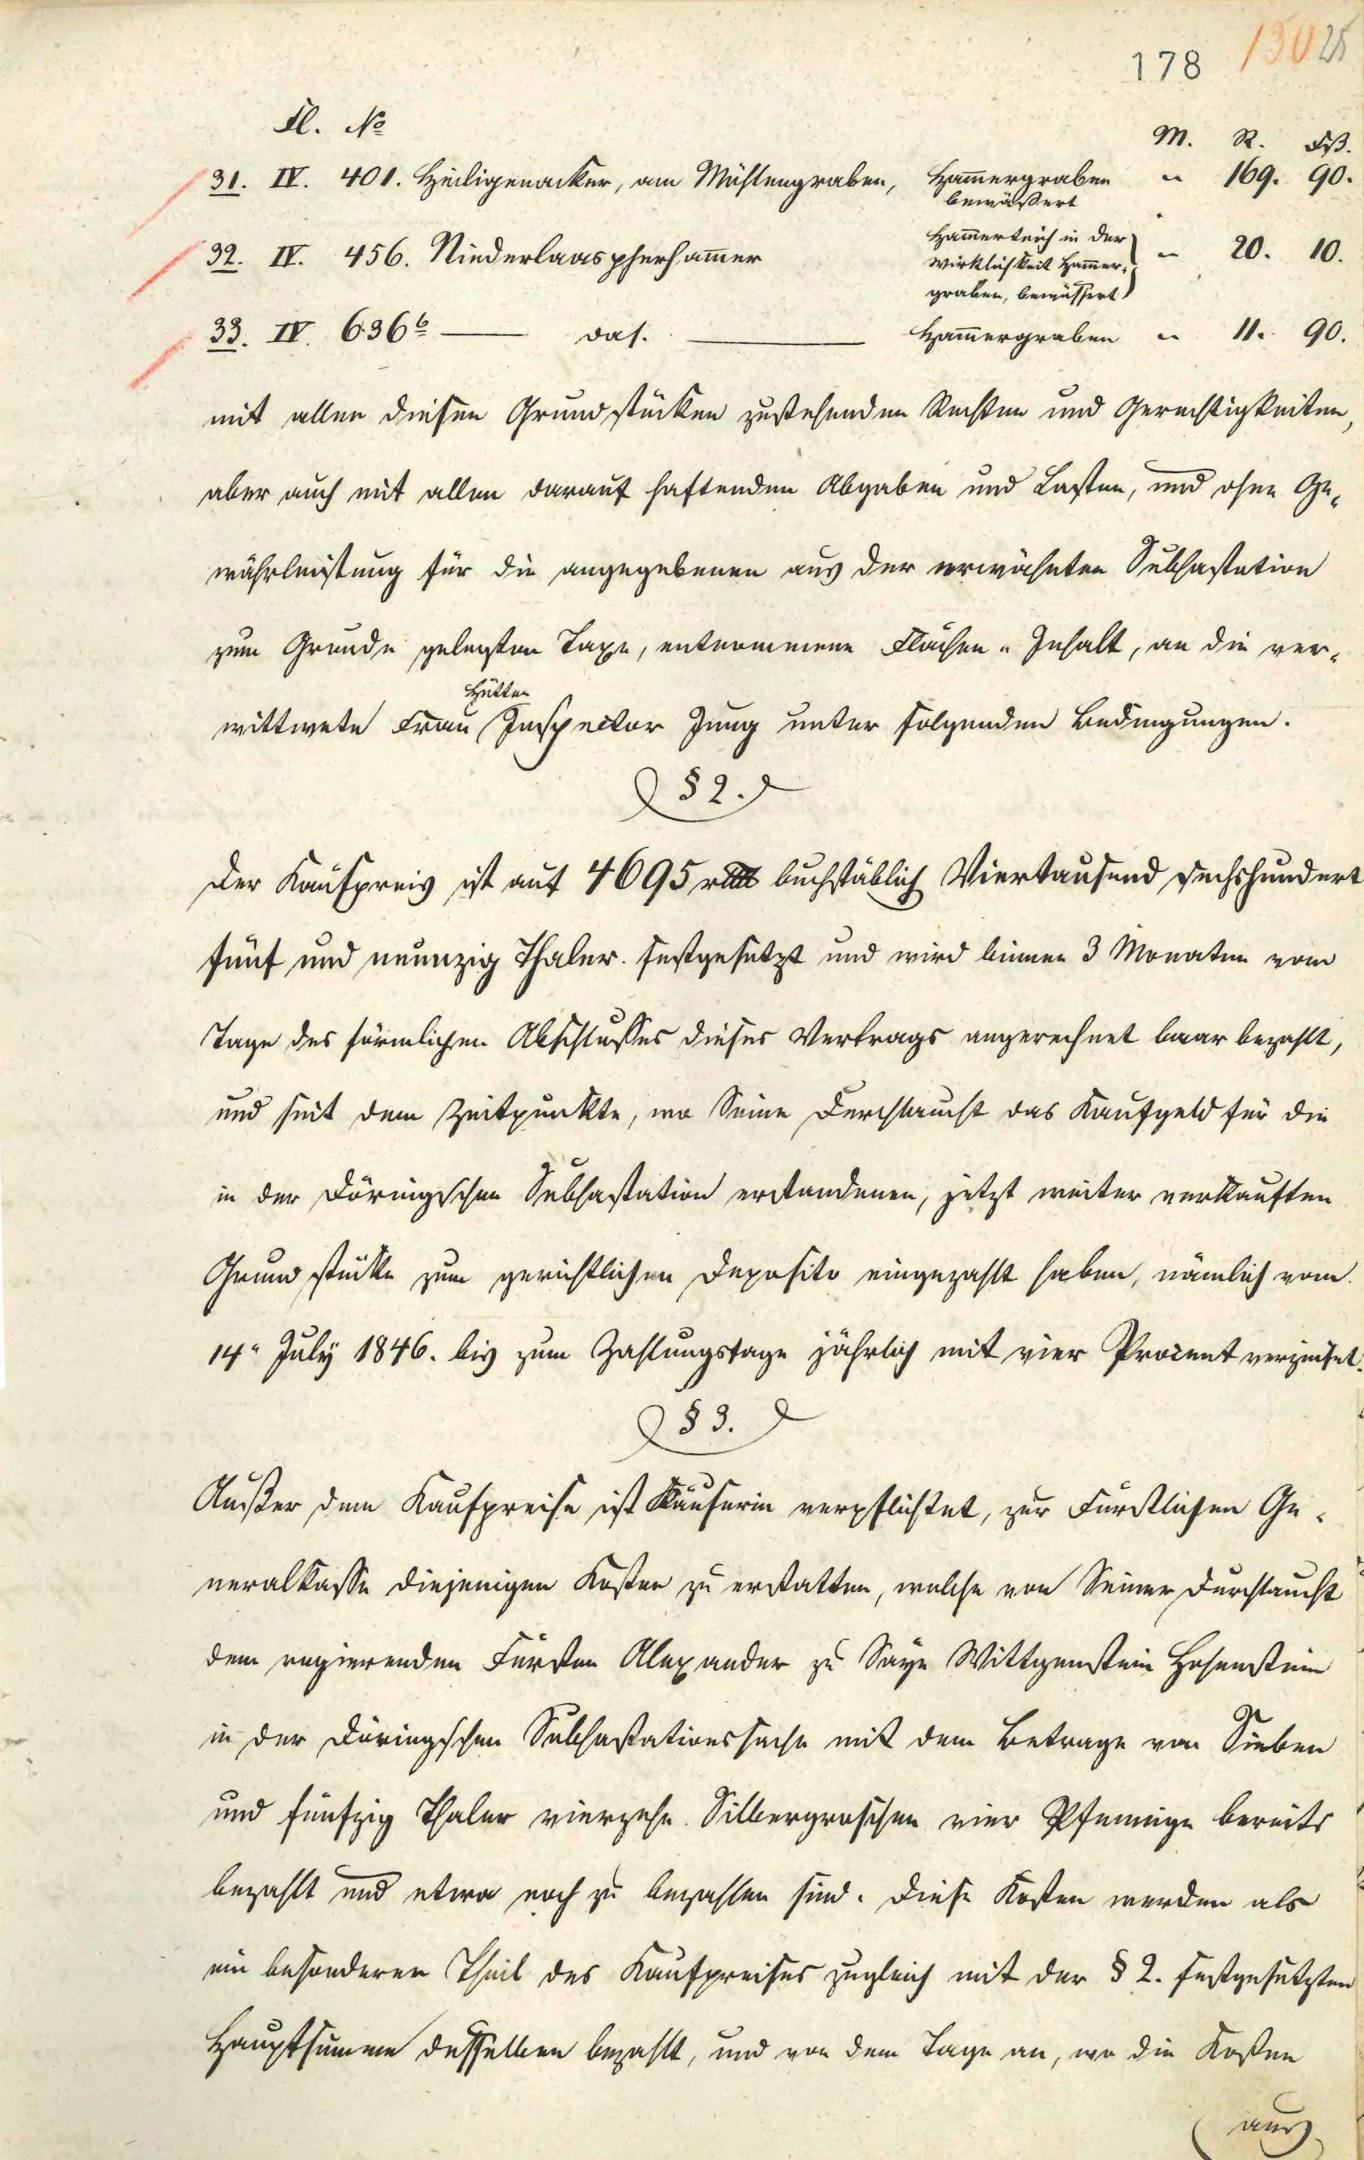 178 150 25
Fl. No
M. R. Fß.
31. IV. 401. Heiligenacker, am Mühlengraben, Hammergraben " 169. 90.
bewäßert
32. IV. 456. Niederlaaspherhammer Hammerteich in der " 20. 10.
Wirklichkeit Hammer-
graben, bewässert
33. IV. 636b das. Hammergraben " 11. 90.
mit allen diesen Grundstücken zustehenden Rechten und Gerechtigkeiten,
aber auch mit allen darauf haftenden Abgaben und Lasten, und ohne Ge-
währleistung für die angegebenen aus der erwähnten Subhastation
zum Grunde gelegten Taxe, entnommene Flächen-Inhalt, an die ver-
Hütten
wittwete Frau Inspector Jung unter folgenden Bedingungen.
§ 2.
Der Kaufpreis ist auf 4695 buchstäblich Viertausend sechshundert
fünf und neunzig Thaler festgesetzt und wird binnen 3 Monaten vom
Tage des förmlichen Abschlusses dieses Vertrags angerechnet baar bezahlt,
und seit dem Zeitpunkte, wo Seine Durchlaucht das Kaufgeld für die
in der Döringschen Subhastation erstandenen, jetzt weiter verkauften
Grundstücke zum gerichtlichen Deposito eingezahlt haben, nämlich vom
14n July 1846. bis zum Zahlungstage jährlich mit vier Procent verzinset.
§ 3.
Außer dem Kaufpreise ist Käuferin verpflichtet, zur Fürstlichen Ge-
neralkasse diejenigen Kosten zu erstatten, welche von Seiner Durchlaucht
dem regierenden Fürsten Alexander zu Sayn Wittgenstein Hohenstein
in der Döringschen Subhastationssache mit dem Betrage von Sieben
und fünfzig Thaler vierzehn Silbergroschen vier Pfennige bereits
bezahlt und etwa noch zu bezahlen sind. Diese Kosten werden als
ein besonderer Theil des Kaufpreises zugleich mit der § 2. festgesetzten
Hauptsumme desselben bezahlt, und von dem Tage an, wo die Kosten
aus